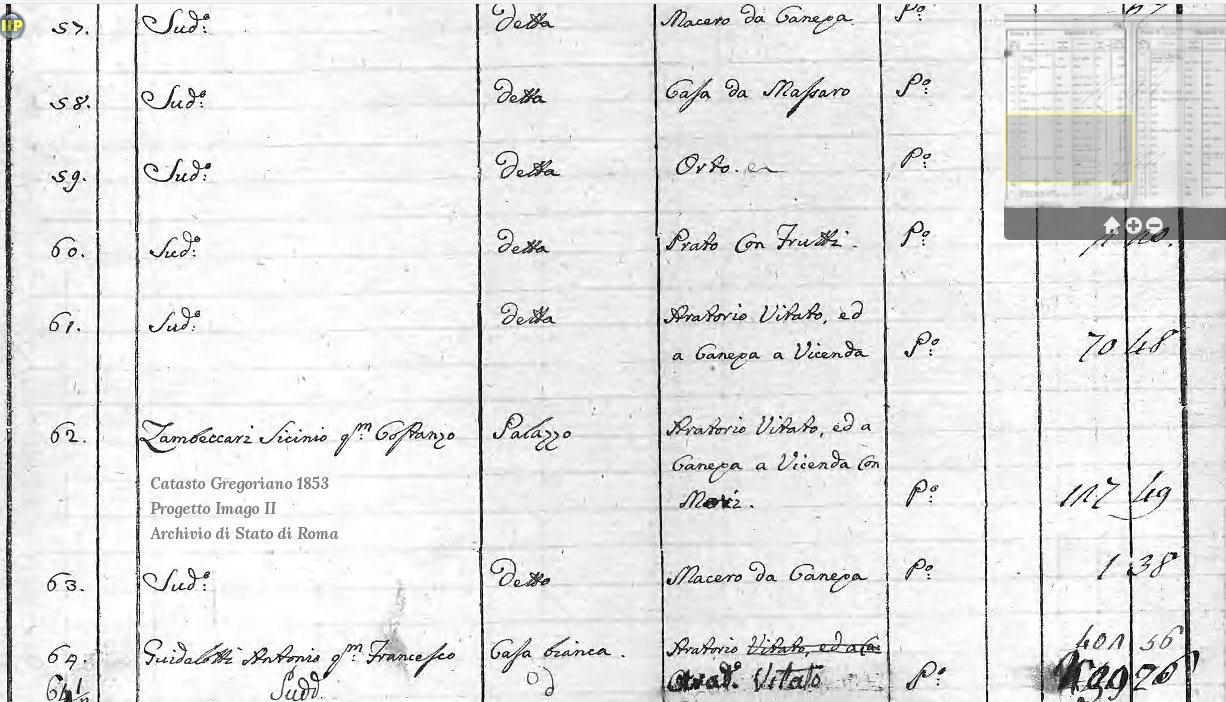 57. Sud.º detta Macero da Canepa P.º
58. Sud.º detta Casa da Massaro P.º
59. Sud.º detta Orto. P.º
60. Sud.º detta Prato Con Frutti. P.º
61. Sud.º detta Aratorio Vitato, ed
a Canepa a Vicenda P.º 70 48
62. Zambeccari Sicinio q.m Costanzo Palazzo Aratorio Vitato, ed a
Canepa a Vicenda Con
Mori. P.º 49
Catasto Gregoriano 1853
Progetto Imago II
Archivio di Stato di Roma
63. Sud.º Detto Macero da Canepa P.º 1 38
64. Guidalotti Antonio q.m Francesco Casa bianca. Aratorio Vitato, ed a Ca: 56
Sudd. Vitato P.º